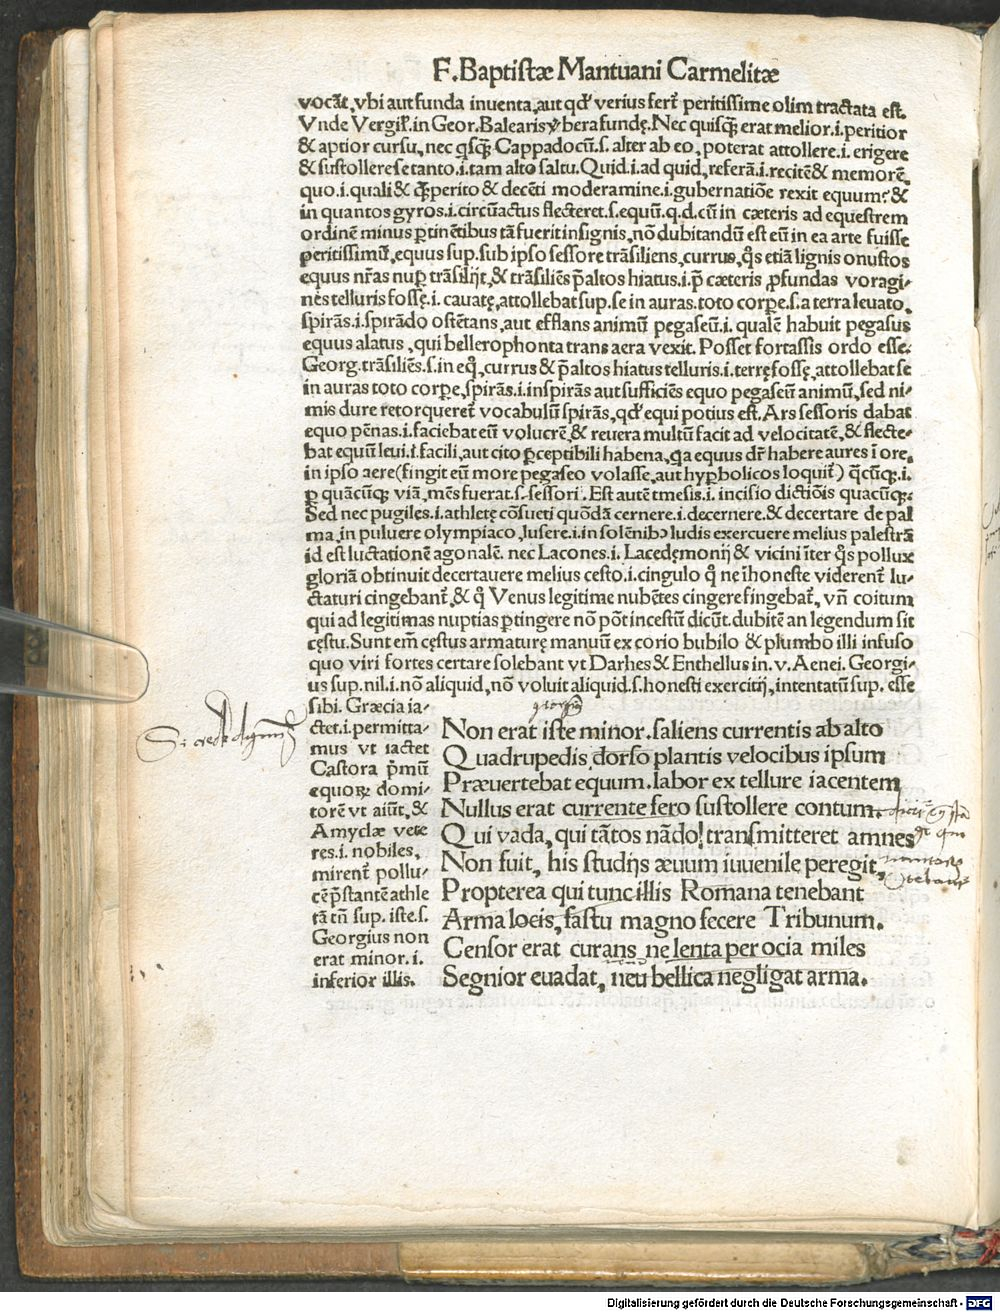 F. Baptistæ Mantuani Carmelitæ
vocāt, vbi aut funda inuenta, aut qd' verius fert̄ peritissime olim tractata est.
Vnde Vergil'. in Geor. Balearis ꝟbera fundę. Nec quisꝗ̄ erat melior .i. peritior
& aptior cursu, nec qsꝗ̄ Cappadocū .s. alter ab eo, poterat attollere .i. erigere
& sustollere se tanto .i. tam alto saltu. Quid .i. ad quid, referā .i. recitē & memorē,
quo .i. quali & ꝗ̄ perito & decēti moderamine .i. gubernatiōe rexit equum? &
in quantos gyros .i. circūactus flecteret .s. equū. q. d. cū in cæteris ad equestrem
ordinē minus ꝑtinētibus tā fuerit insignis, nō dubitandū est eū in ea arte fuisse
peritissimū, equus sup. sub ipso sessore trāsiliens, currus, qͦs etiā lignis onustos
equus nr̄as nuꝑ trāsilijt, & trāsiliēs p̄altos hiatus .i. p̄ cæteris ꝓfundas voragi-
nes telluris fossę .i. cauatę, attollebat sup. se in auras. toto corꝑe .s. a terra leuato,
spirās .i. spirādo ostētans, aut efflans animū pegaseū .i. qualē habuit pegasus
equus alatus, qui bellerophonta trans aera vexit. Posset fortassis ordo esse.
Georg. trāsiliēs .s. in eqͦ, currus & p̄altos hiatus telluris .i. terrę fossę, attollebat se
in auras toto corꝑe, spirās .i. inspirās aut sufficiēs equo pegaseū animū, sed ni-
mis dure retorqueret̄ vocabulū spirās, qd' equi potius est. Ars sessoris dabat
equo pēnas .i. faciebat eū volucrē, & reuera multū facit ad velocitatē, & flecte-
bat equū leui .i. facili, aut cito ꝑceptibili habena, qa equus dr̄ habere aures ī ore,
in ipso aere (fingit eū more pegaseo volasse, aut hyꝑbolicos loquit̄) qcūqꝫ .i.
ꝑ quācūqꝫ viā, mēs fuerat .s. sessori. Est autē tmesis .i. incisio dictiōis quacūqꝫ.
Sed nec pugiles .i. athletę cōsueti quōdā cernere .i. decernere. & decertare de pal
ma, in puluere olympiaco, lusere .i. in solēnibꝰ ludis exercuere melius palestrā
id est luctationē agonalē. nec Lacones .i. Lacedęmonij & vicini īter qͦs pollux
gloriā obtinuit decertauere melius cesto .i. cingulo qͦ ne īhoneste viderent̄ lu-
ctaturi cingebant̄, & qͦ Venus legitime nubētes cingere fingebat̄, vn̄ coitum
qui ad legitimas nuptias ꝑtingere nō pōt incestū dicūt. dubitē an legendum sit
cęstu. Sunt em̄ cęstus armaturę manuū ex corio bubilo & plumbo illi infuso
quo viri fortes certare solebant vt Darhes & Enthellus in .v. Aenei. Georgi-
us sup. nil .i. nō aliquid, nō voluit aliquid .s. honesti exercitij, intentatū sup. esse
sibi. Græcia ia-
ctet .i. permitta-
mus vt iactet
Castora p̄mū
equoꝝ domi-
torē vt aiūt, &
Amyclæ vete
res .i. nobiles,
mirent̄ pollu-
cē p̄stantē athle
tā tn̄ sup. iste .s.
Georgius non
erat minor .i.
inferior illis.
Non erat iste minor. saliens currentis ab alto
Quadrupedis dorso plantis velocibus ipsum
Præuertebat equum. labor ex tellure iacentem
Nullus erat currente fero sustollere contum.
Qui vada, qui tātos nādo! transmitteret amnes
Non fuit, his studijs æuum iuuenile peregit,
Propterea qui tunc illis Romana tenebant
Arma locis, fastu magno fecere Tribunum.
Censor erat curans, ne lenta per ocia miles
Segnior euadat, neu bellica negligat arma.
Digitalisierung gefördert durch die Deutsche Forschungsgemeinschaft - DFG